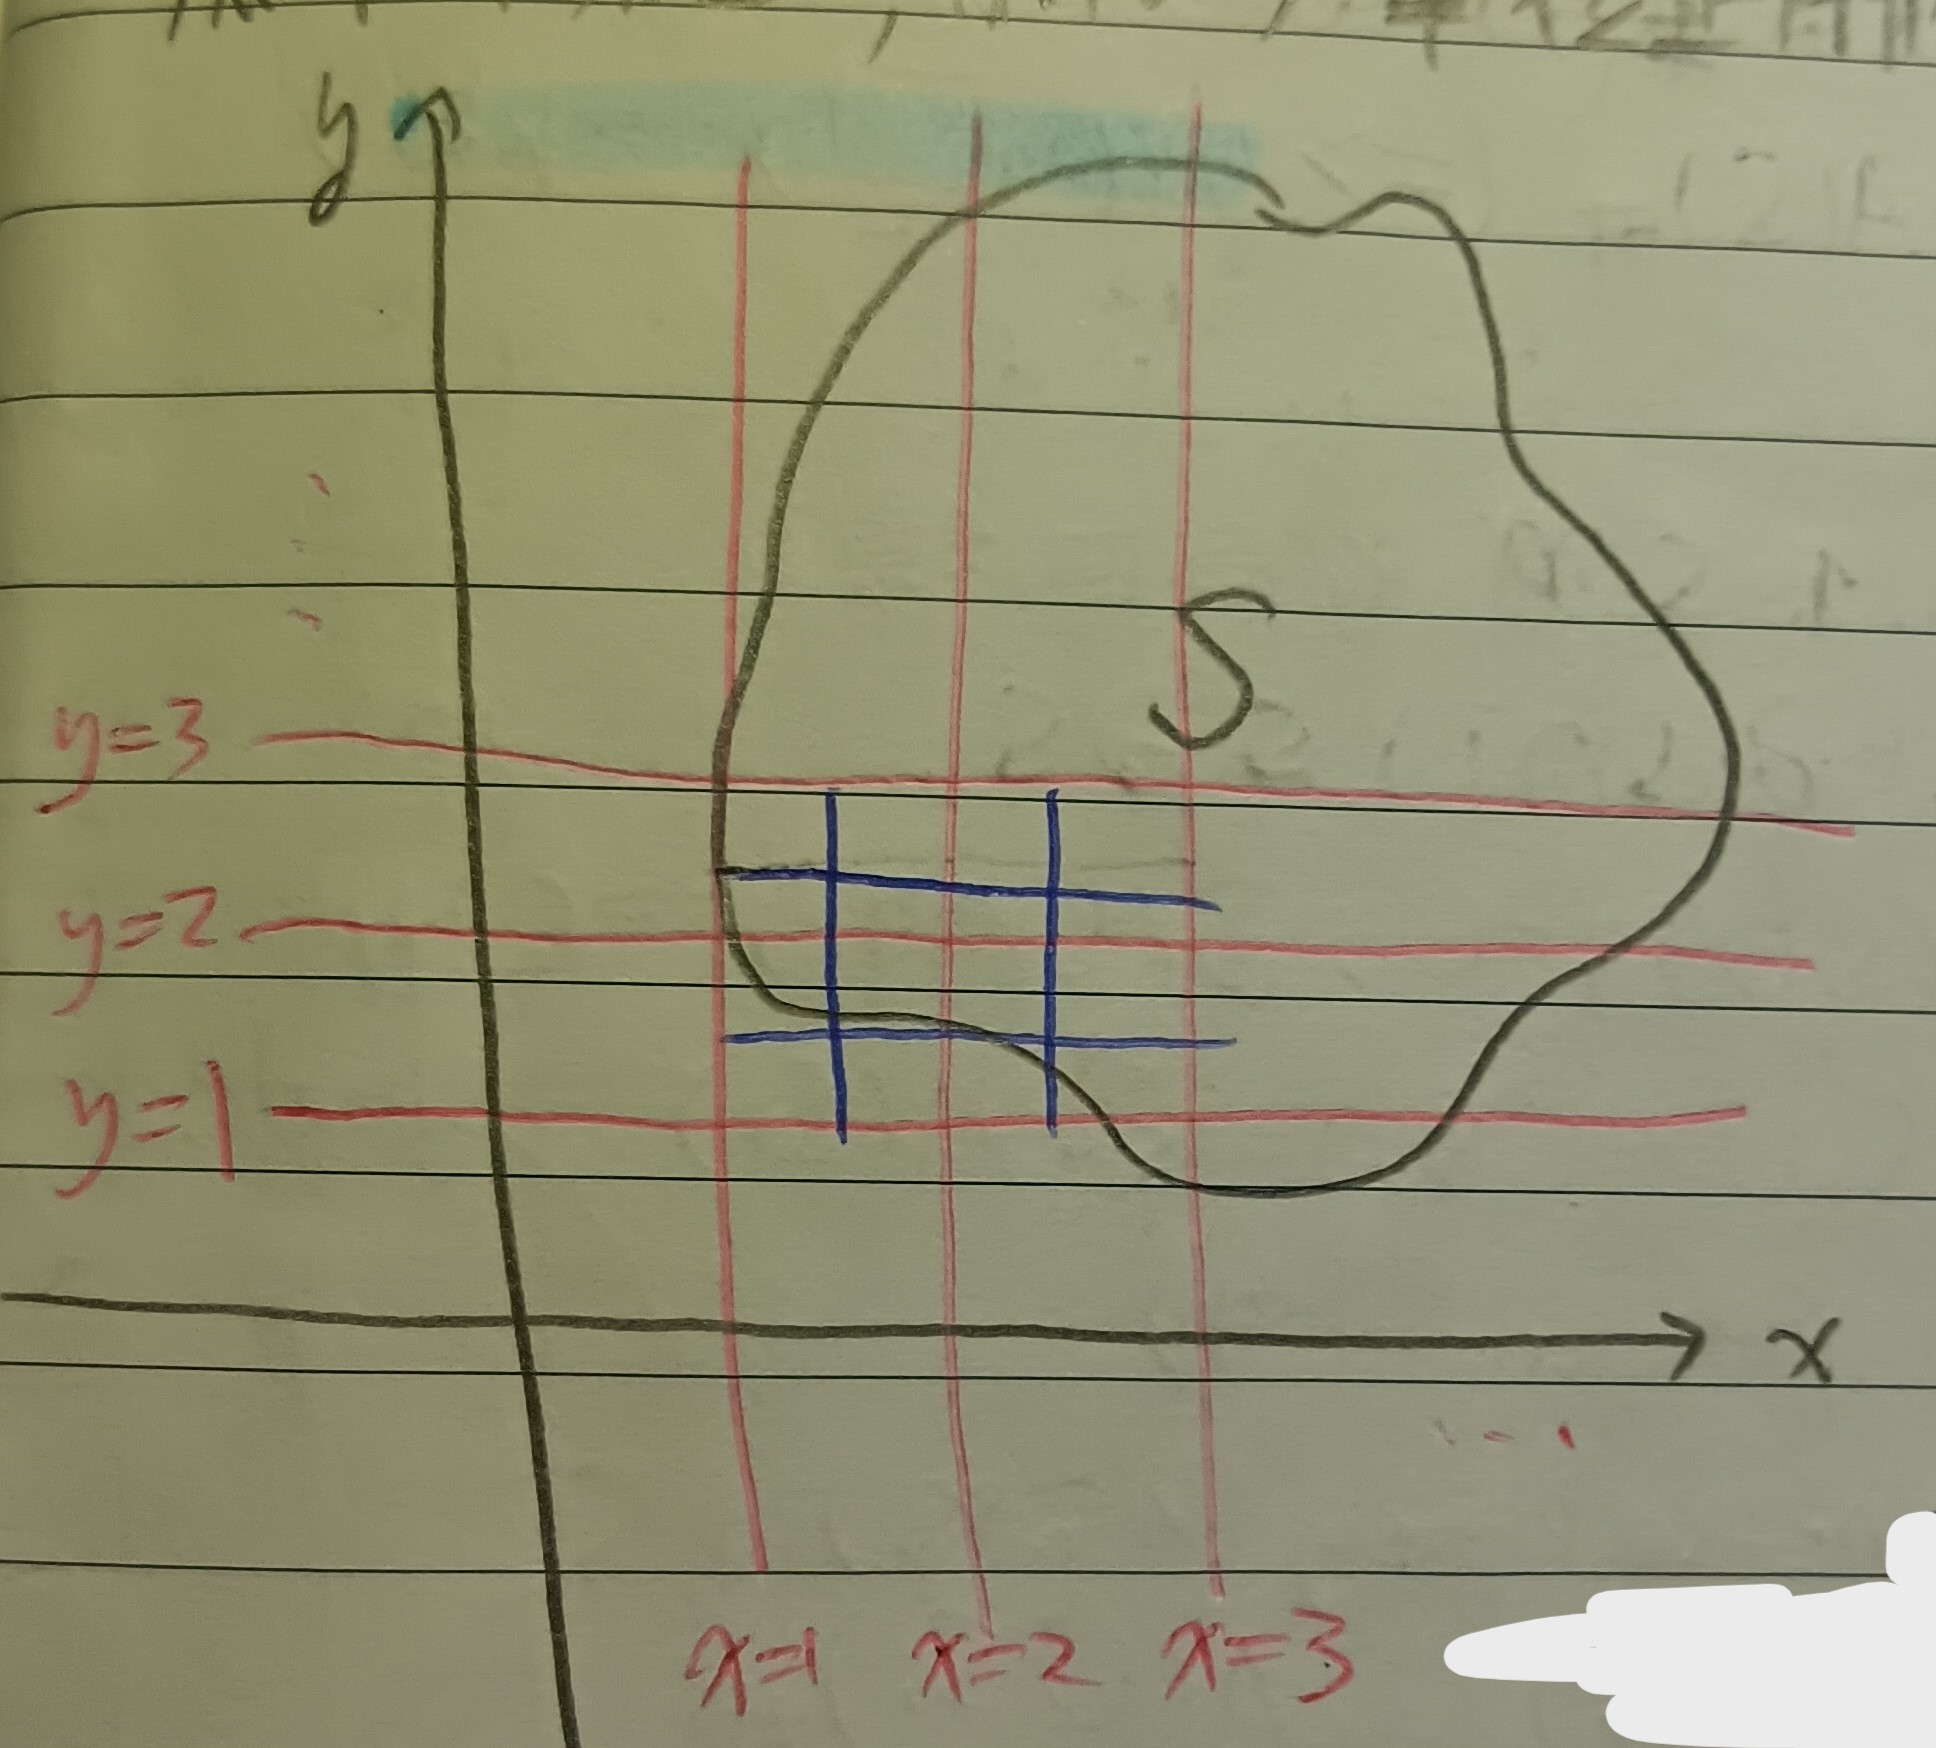 y
S
y=3
y=2
y=1
x
x=1 x=2 x=3